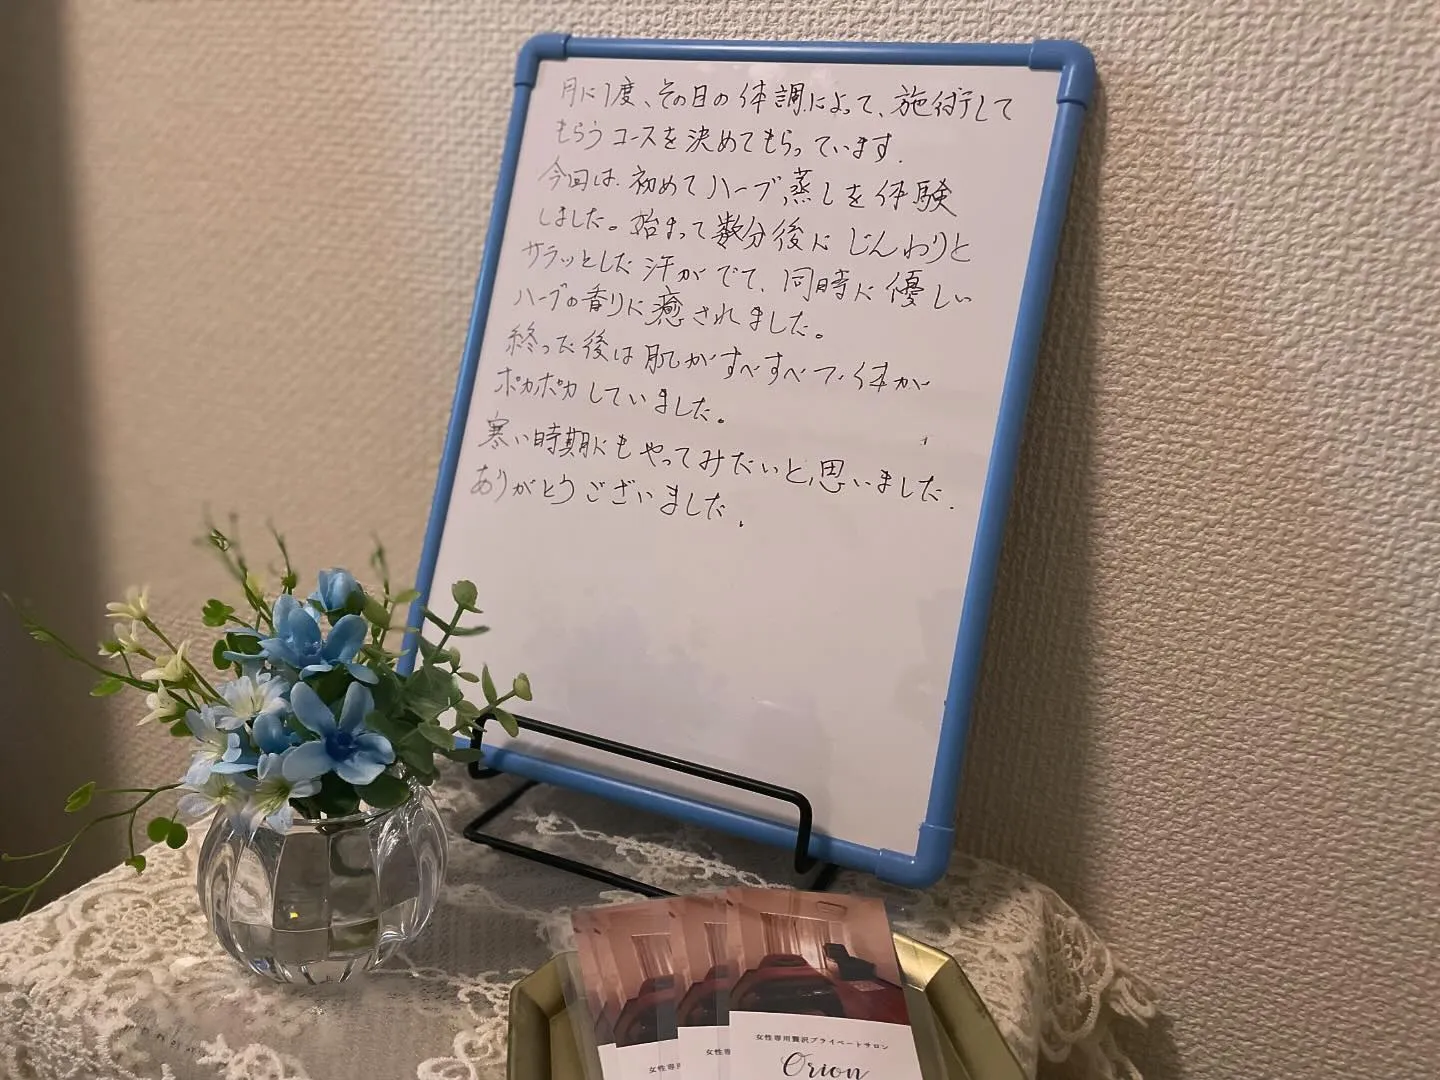 月に1度、その日の体調によって、施術して
もらうコースを決めてもらっています.
今回は、初めてハーブ蒸しを体験
しました。始まって数分後に じんわりと
サラッとした汗がでて、同時に優しい
ハーブの香りに癒されました。
終った後は肌がすべすべで、体が
ポカポカしていました。
寒い時期にもやってみたいと思いました.
ありがとうございました.
女性専用贅沢プライベートサロン
Orion
女性専
女性専用